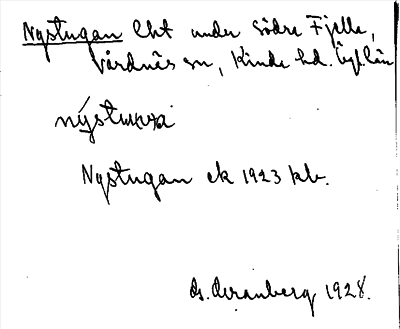 Nystugan lht under Södra Fjälla,
Vårdnäs sn, Kinda hd. Ög. län
Nystugan ek 1923 kb.
G. Granberg 1928.